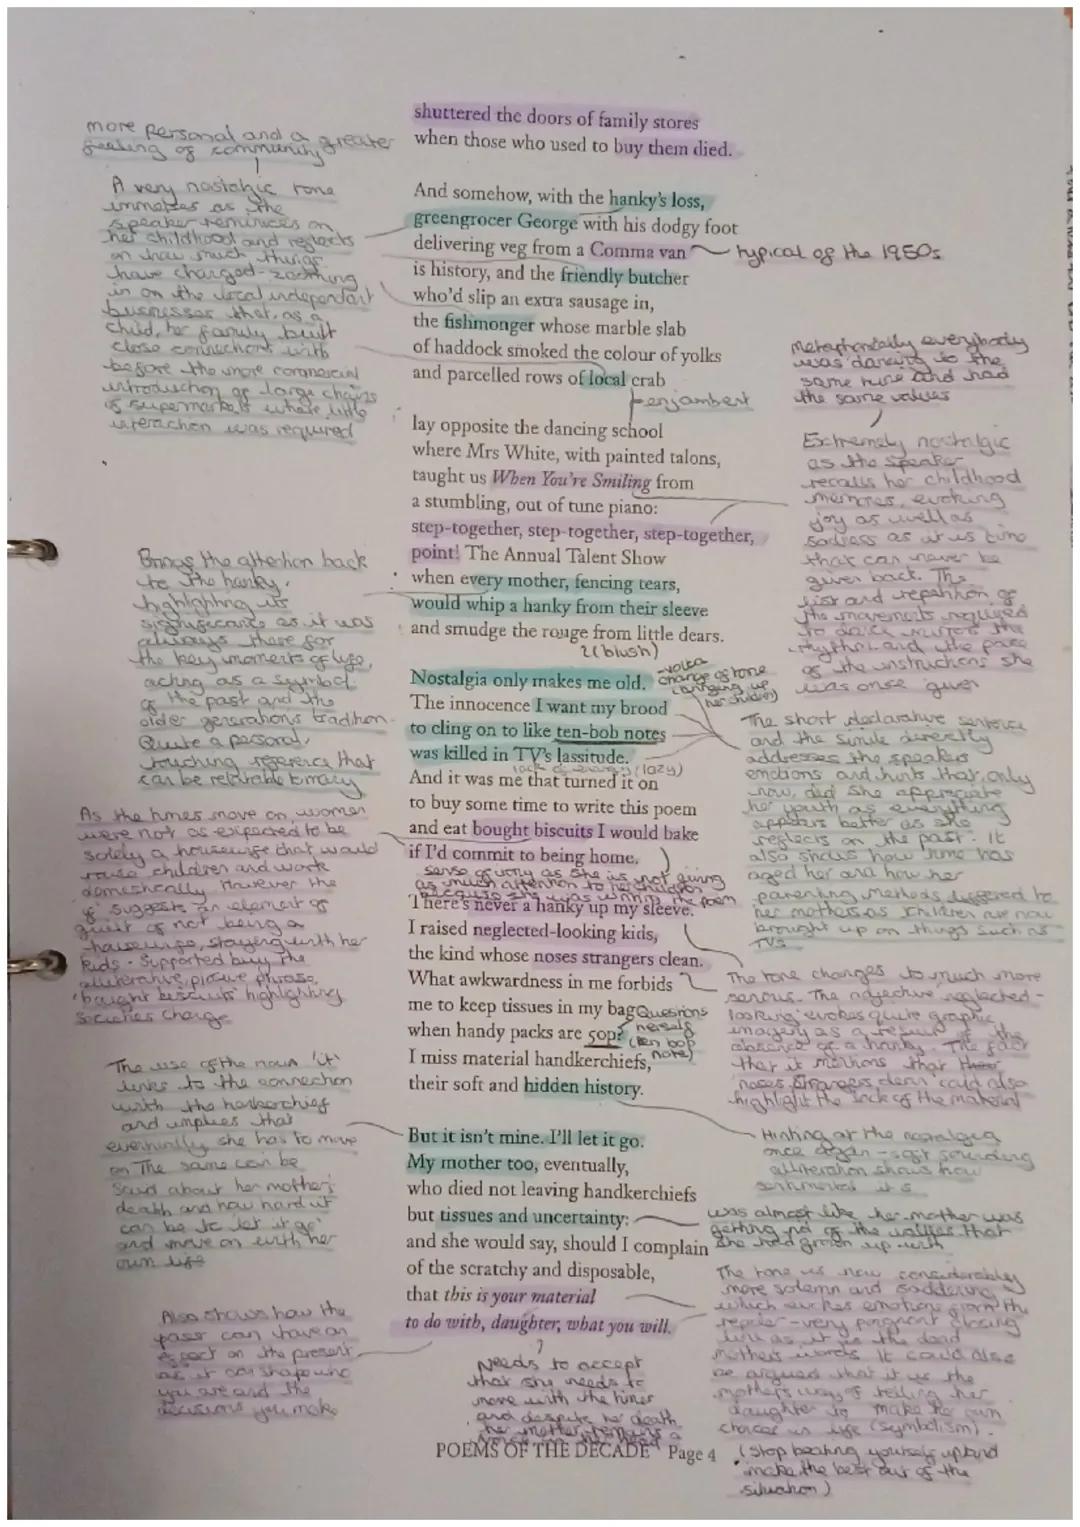 shuttered the doors of family stores
when those who used to buy them died.
more personal and a greater
feeling of community
A very nostalgic tone
immerges as the
speaker reminices on
her childhood and reflects
on how much things
have changed - zooming
in on the local independant
businesses that, as a
child, her family built
close connections with
before the more commercial
introduction of large chains
of supermarkets where little
interaction was required
And somehow, with the hanky's loss,
greengrocer George with his dodgy foot
delivering veg from a Comma van
typical of the 1950s
is history, and the friendly butcher
who'd slip an extra sausage in,
the fishmonger whose marble slab
of haddock smoked the colour of yolks
and parcelled rows of local crab
enjambent
lay opposite the dancing school
where Mrs White, with painted talons,
taught us When You're Smiling from
a stumbling, out of tune piano:
step-together, step-together, step-together,
point! The Annual Talent Show
when every mother, fencing tears,
would whip a hanky from their sleeve
and smudge the rouge from little dears.
(blush)
Metaphorically everybody
was dancing to the
same tune and had
the same values
Extremely nostalgic
as the speaker
recalls her childhood
memories, evoking
joy as well as
sadness as it is time
that can never be
given back. The
list and repetition of
the movements required
to dance mirrors the
rhythm and the pace
of the instructions she
was once given
Brings the attention back
to the hanky,
highlighting its
significance as it was
always there for
the key moments of life,
acting as a symbol
of the past and the
older generations tradition.
Quite a personal,
touching reference that
can be relatable to many
Nostalgia only makes me old.
volta
change of tone
(bringing up
her children)
The innocence I want my brood
to cling on to like ten-bob notes
was killed in TV's lassitude.
lack of energy (lazy)
And it was me that turned it on
to buy some time to write this poem
and eat bought biscuits I would bake
if I'd commit to being home.
sense of irony as she is not giving
as much attention to her children
because she was writing the poem
The short declarative sentence
and the simile directly
addresses the speakers
emotions and hints that, only
now, did she appreciate
her youth as everything
appears better as she
reflects on the past. It
also shows how time has
aged her and how her
parenting methods differed to
her mothers as children are now
brought up on things such as
TVs
As the times move on, women
were not as expected to be
solely a housewife that would
raise children and work
domestically However the
'if' suggests an element of
guilt of not being a
housewife, staying with her
kids - supported by the
alliterative, plosive phrase,
'bought biscuits' highlighting
societies change
There's never a hanky up my sleeve.
I raised neglected-looking kids,
the kind whose noses strangers clean.
What awkwardness in me forbids
me to keep tissues in my bag
when handy packs are 50p?
Questions
herself
(ten bob
note)
I miss material handkerchiefs,
their soft and hidden history.
The tone changes to much more
serious. The adjective 'neglected-
looking' evokes quite graphic
imagery as a result of the
absence of a hanky. The fact
that it mentions that
'noses strangers clean' could also
highlight the lack of the material
Hinting at the nostalgia
once again - soft sounding
alliteration shows how
sentimental it is
The use of the noun 'it'
links to the connection
with the hankerchief
and implies that
eventually she has to move
on The same can be
said about her mother's
death and how hard it
can be to 'let it go'
and move on with her
own life
But it isn't mine. I'll let it go.
My mother too, eventually,
who died not leaving handkerchiefs
but tissues and uncertainty:
and she would say, should I complain
of the scratchy and disposable,
that this is your material
to do with, daughter, what you will.
was almost like her mother was
getting rid of the values that
she had grown up with
The tone is now considerably
more solemn and saddening
which evokes emotions from the
reader - very poignant closing
line as it is the dead
mothers words. It could also
be argued that it is the
mothers way of telling her
daughter to make her own
choices in life (symbolism).
(stop beating yourself up and
make the best out of the
situation)
Also shows how the
past can have an
effect on the present
as it can shape who
you are and the
decisions you make
Needs to accept
that she needs to
move with the times
and despite her death
her mother remains a
POEMS OF THE DECADE Page 4